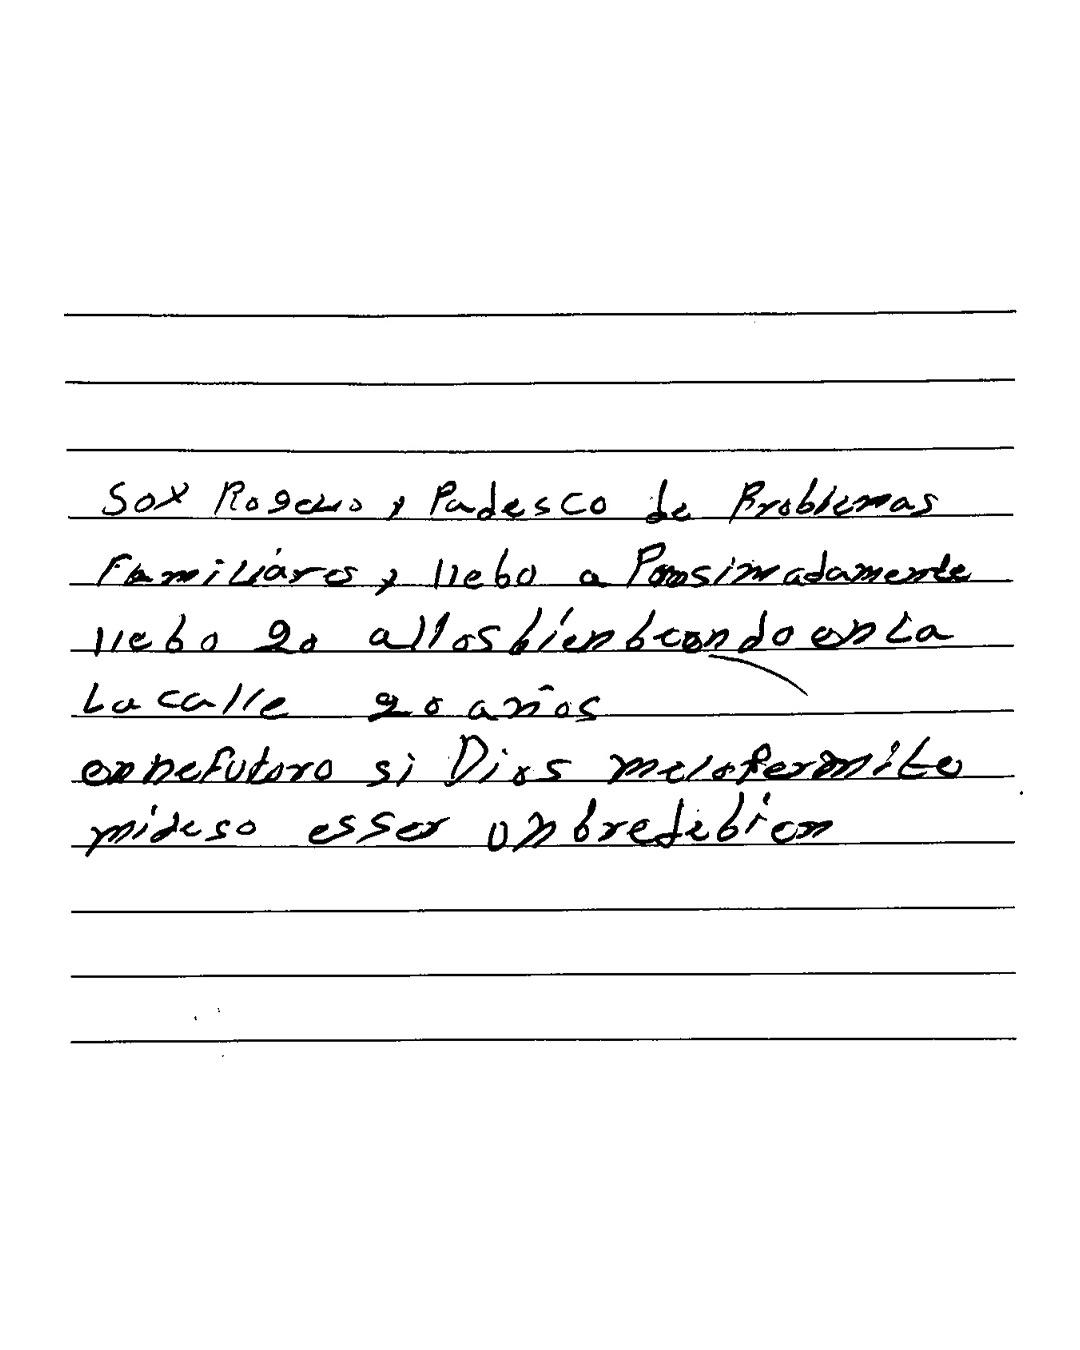 Soy Rogelio y Padesco de Problemas
Familiáres y llebo a Pro simadamente
llebo 20 allos bíen biendo en La
La calle 20 años
enneFutoro si Dios melo permite
mideso esser unbredebien